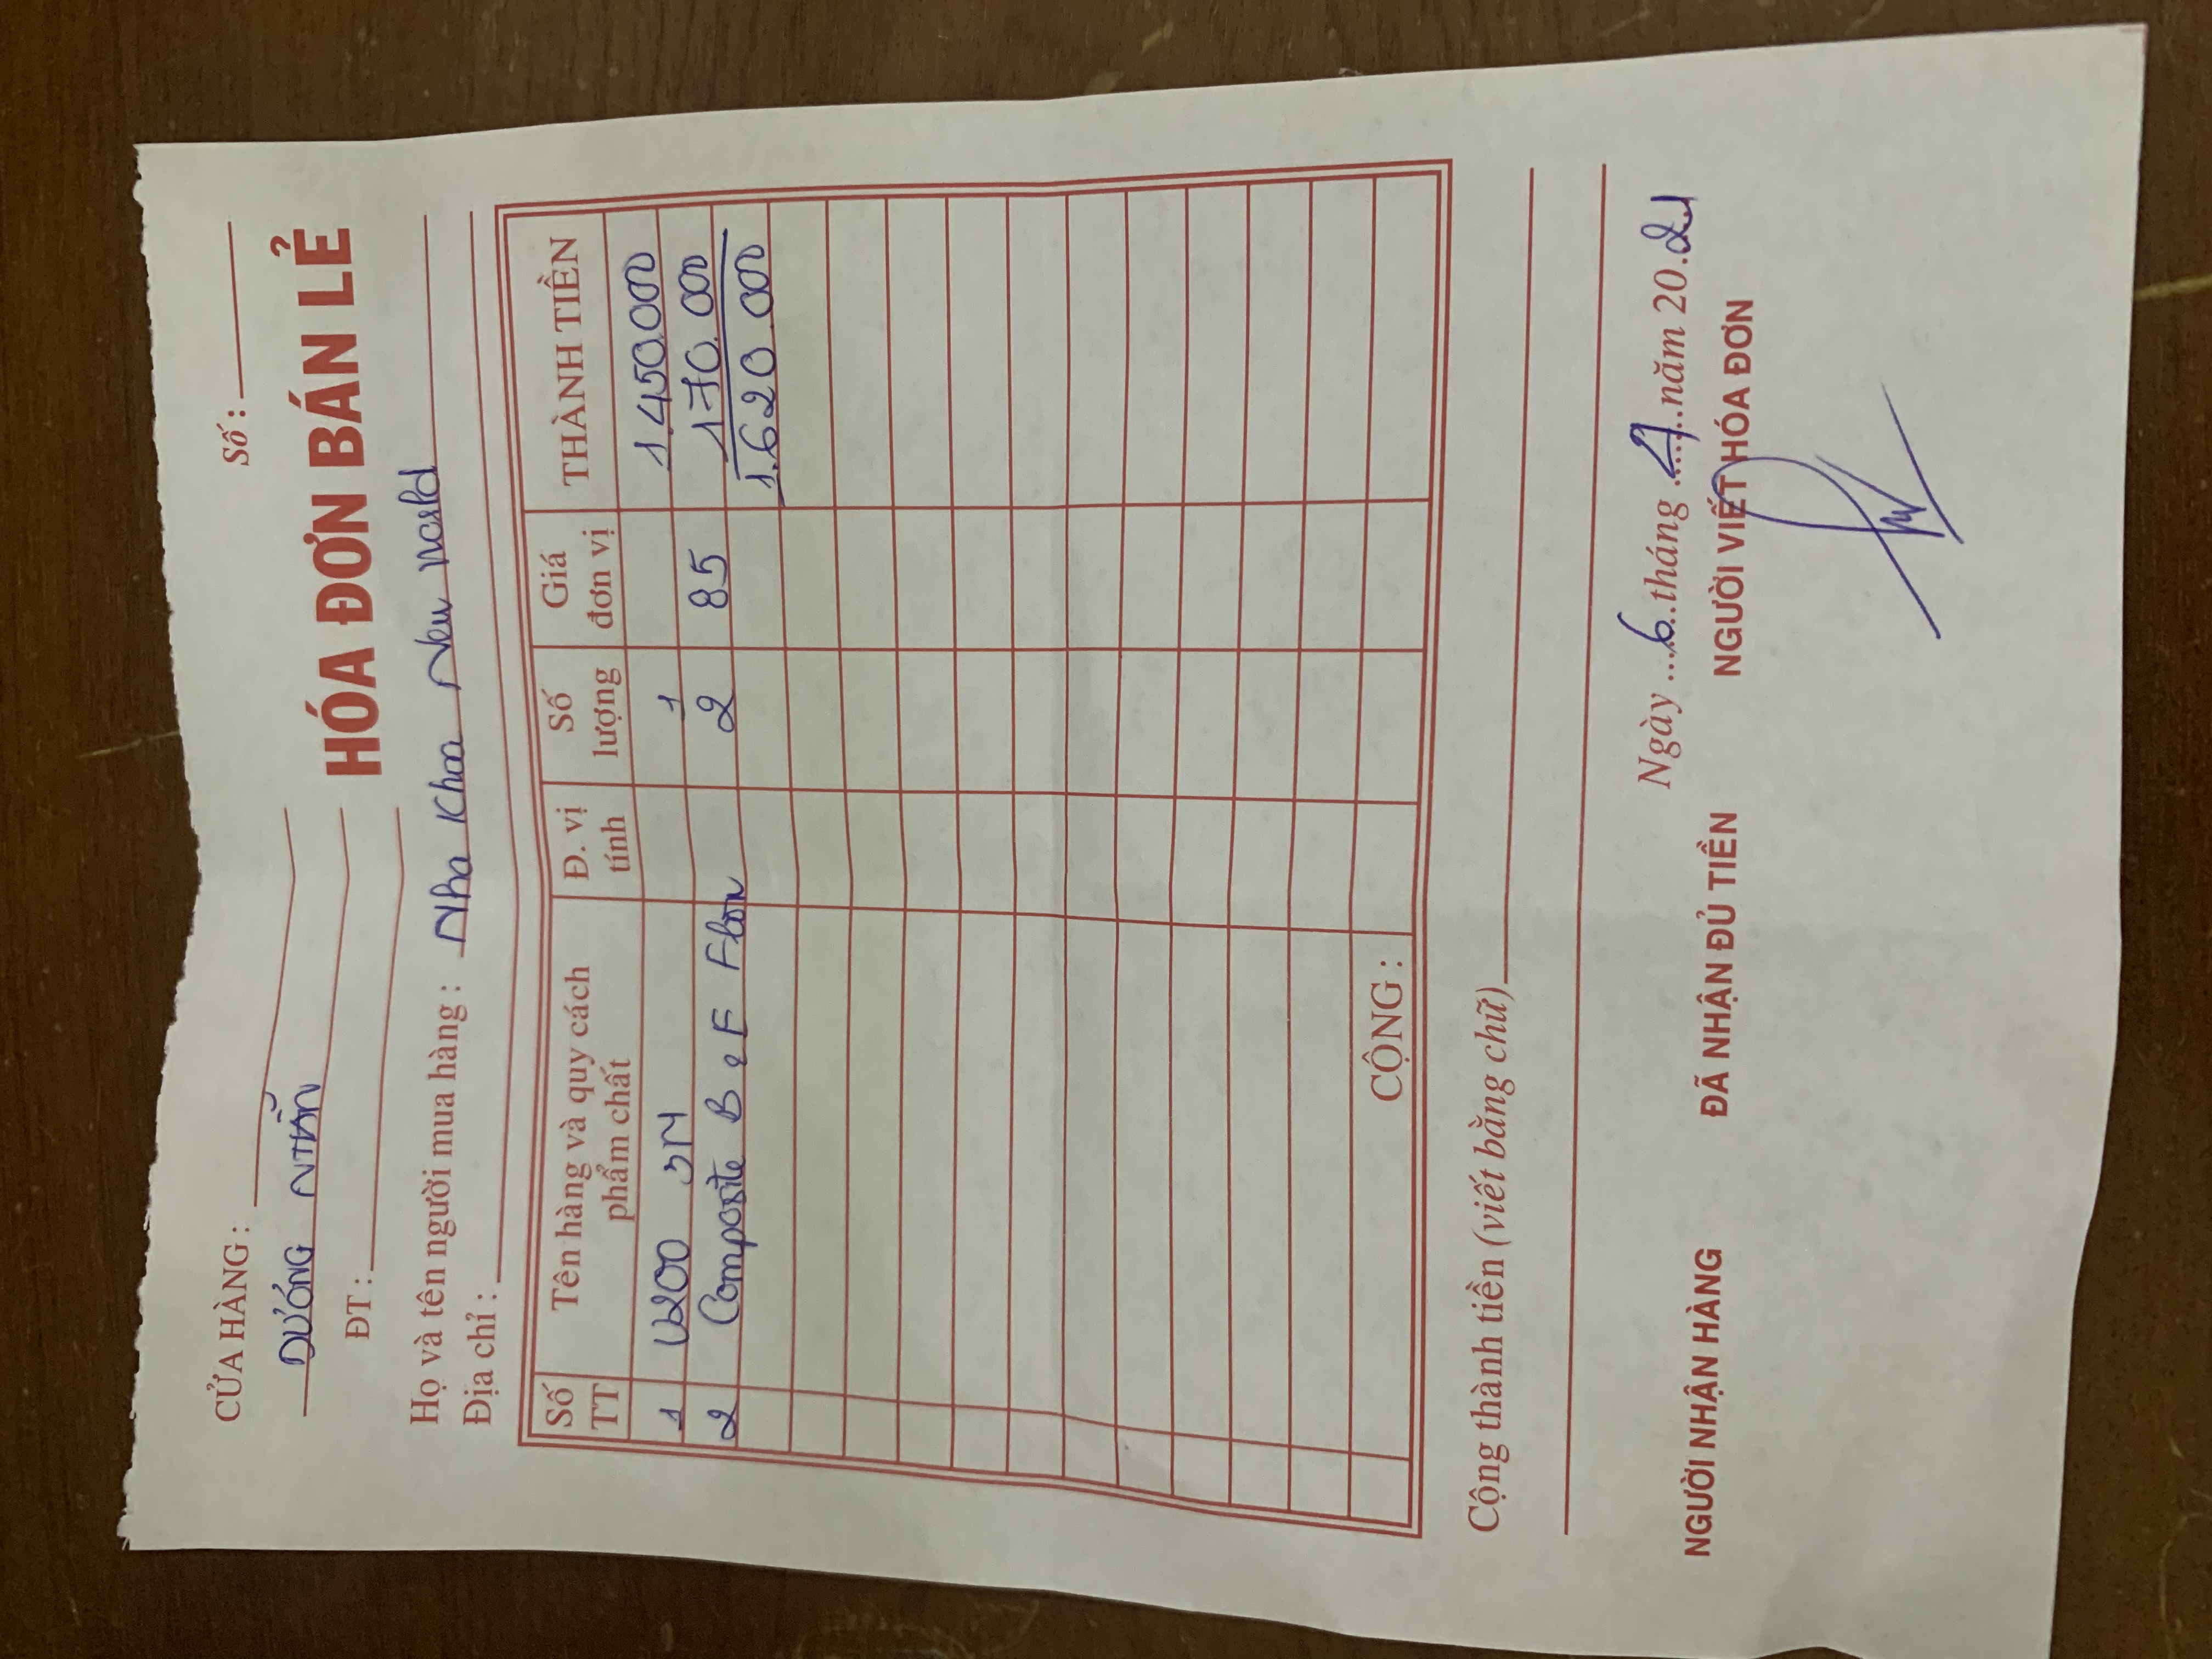 CỬA HÀNG :
Số :
DƯƠNG NHẪN
HÓA ĐƠN BÁN LẺ
ĐT :
Họ và tên người mua hàng : Nha Khoa New World
Địa chỉ :
Số TT Tên hàng và quy cách phẩm chất Đ. vị tính Số lượng Giá đơn vị THÀNH TIỀN
1 U200 3M 1 1.450.000
2 Composite B & E Flow 2 85 170.000
1.620.000
CỘNG :
Cộng thành tiền (viết bằng chữ)
Ngày ...6...tháng ...4...năm 20.21
NGƯỜI NHẬN HÀNG ĐÃ NHẬN ĐỦ TIỀN NGƯỜI VIẾT HÓA ĐƠN